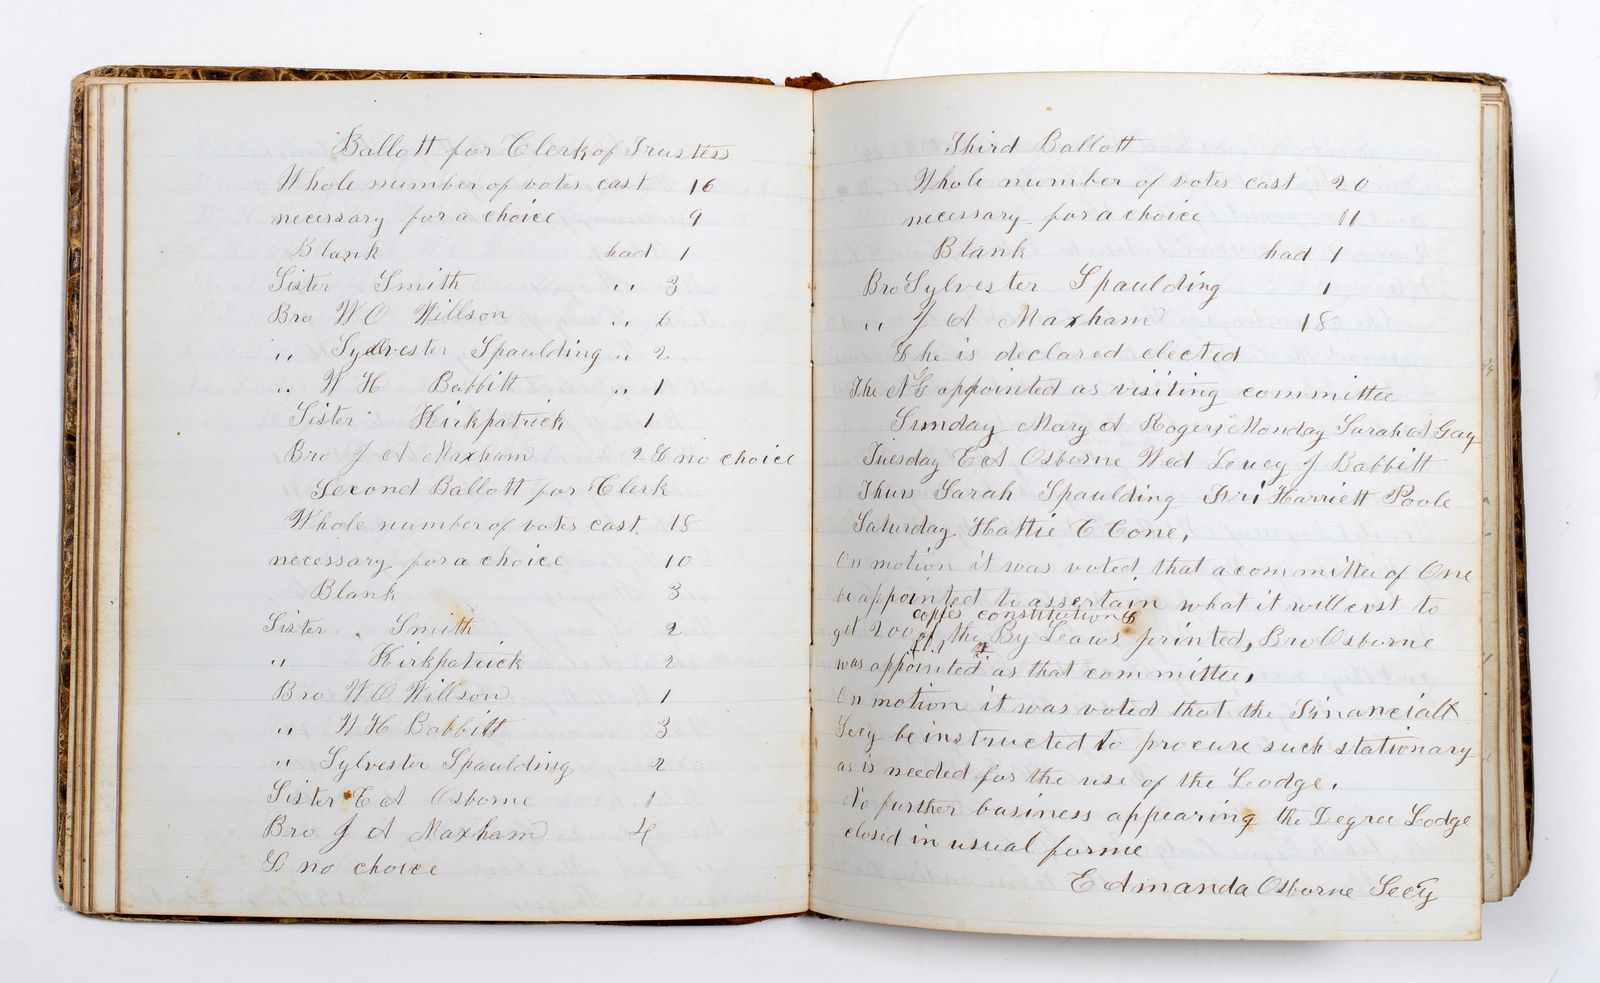 Ballott for Clerk of Trustees
Whole number of votes cast 16
necessary for a choice 9
Blank had 1
Sister Smith " 3
Bro W O Willson " 6
" Sylvester Spaulding " 2
" W H Babbitt " 1
Sister Kirkpatrick 1
Bro J A Maxham 2 & no choice
Second Ballott for Clerk
Whole number of votes cast. 18
necessary for a choice 10
Blank 3
Sister Smith 2
" Kirkpatrick 2
Bro W O Willson 1
" W H Babbitt 3
" Sylvester Spaulding 2
Sister E A Osborne 1
Bro J A Maxham 4
& no choice
Third Ballott
Whole number of votes cast 20
necessary for a choice 11
Blank had 1
Bro Sylvester Spaulding 1
" J A Maxham 18
& he is declared elected
The N G appointed as visiting committee
Sunday Mary A Rogers Monday Sarah A Gay
Tuesday E A Osborne Wed Leucy J Babbitt
Thurs Sarah Spaulding Fri Harriett Poole
Saturday Hattie C Cone,
On motion it was voted that a committee of One
be appointed to assertain what it will cost to
copies constitution &
get 200 of the By Leaws printed, Bro Osborne
was appointed as that committee,
On motion it was voted that the Financiall
Secy be instructed to procure such stationary
as is needed for the use of the Leodge.
No further business appearing the Degree Lodge
closed in usual forme
Edmanda Osborne Secy